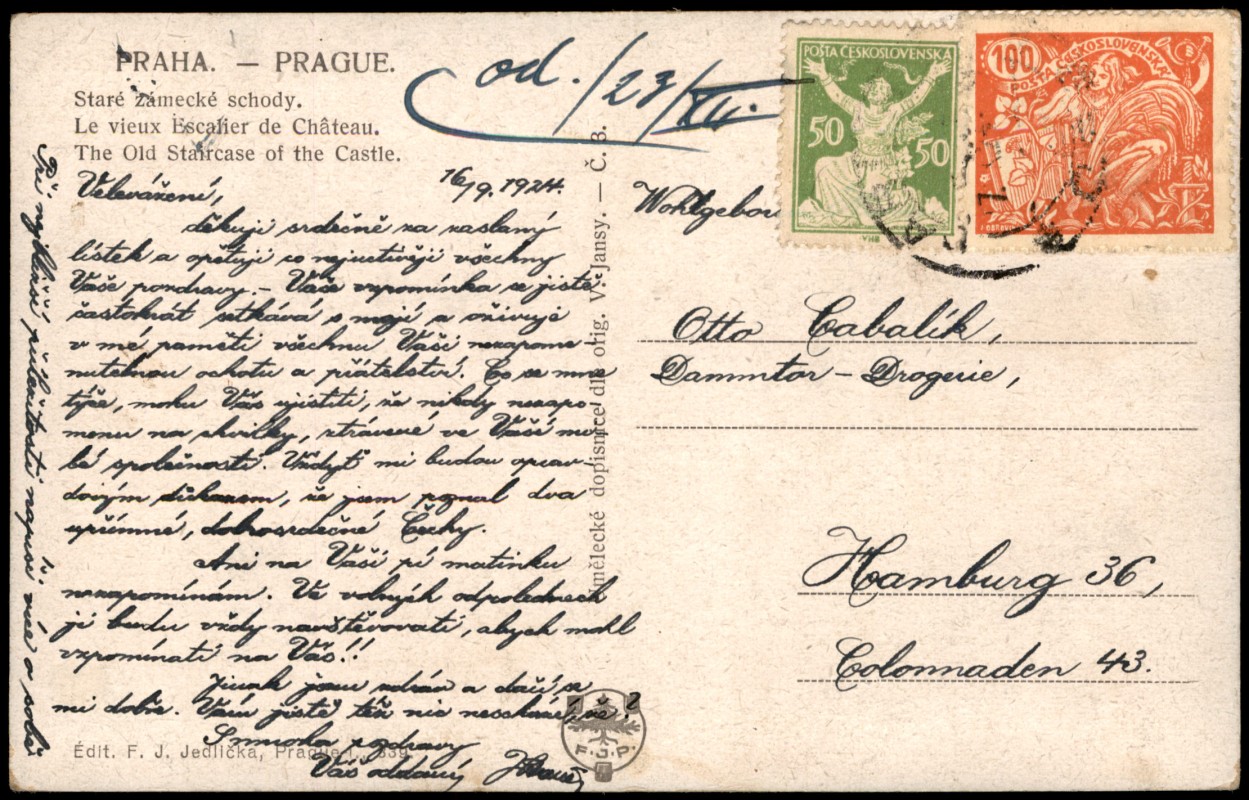 PRAHA. — PRAGUE.
Staré zámecké schody.
Le vieux Escalier de Château.
The Old Staircase of the Castle.
od. /23/XII.
POŠTA ČESKOSLOVENSKÁ
50 50
VHB
100
POŠTA ČESKOSLOVENSKÁ
16/9. 1924.
Velevážení,
děkuji srdečně za zaslaný
lístek a opětuji co nejuctivěji všechny
Vaše pozdravy. – Vaše vzpomínka se jistě
častokrát setkává s mojí a oživuje
v mé paměti všechnu Vaši nezapome-
nutelnou ochotu a přátelství. Co se mne
týče, mohu Vás ujistiti, že nikdy nezapo-
menu na chvilky, ztrávené ve Vaší mi-
lé společnosti. Vždyť mi budou oprav-
dovým důkazem, že jsem poznal dva
upřímné, dobrosrdečné Čechy.
Ani na Vaši pí matinku
nezapomínám. Ve volných odpolednech
ji budu vždy navštěvovati, abych mohl
vzpomínati na Vás!!
Jinak jsem zdráv a daří se
mi dobře. Vám jistě též nic neschází, že?
S mnoha pozdravy
Váš oddaný
Při nejbližší příležitosti napíši více o sobě
Édit. F. J. Jedlička, Prague I., 339
F. J. P.
Umělecké dopisnice dle orig. V. Jansy. — Č. 3.
Otto Cabalík,
Dammtor – Drogerie,
Hamburg 36,
Colonnaden 43.